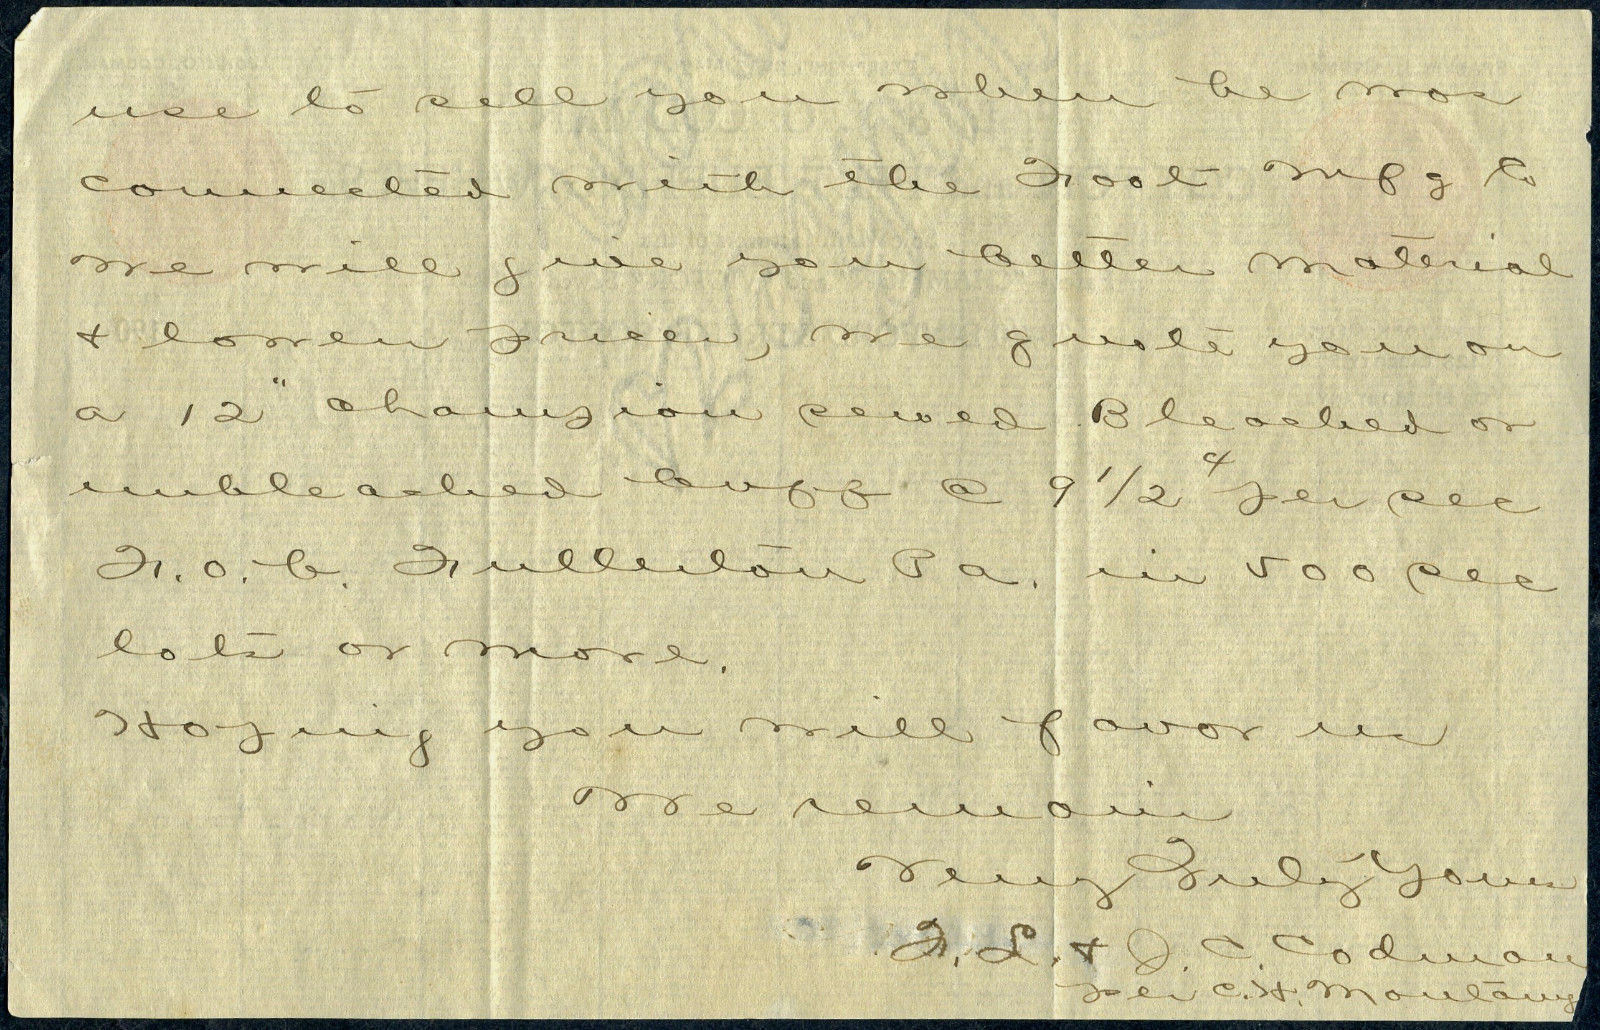 use to sell you when he was
connected with the Foot Mfg Co
We will give you better material
& lower prices, we quote you on
a 12" champion sewed Bleached or
unbleached buff @ 9 1/2 ¢ per sec
F.O.B. Fullerton Pa. in 500 sec
lots or more.
Hoping you will favor us
We remain
Very Truly Yours
F. L. & J. C. Codman
per C. H. Montany